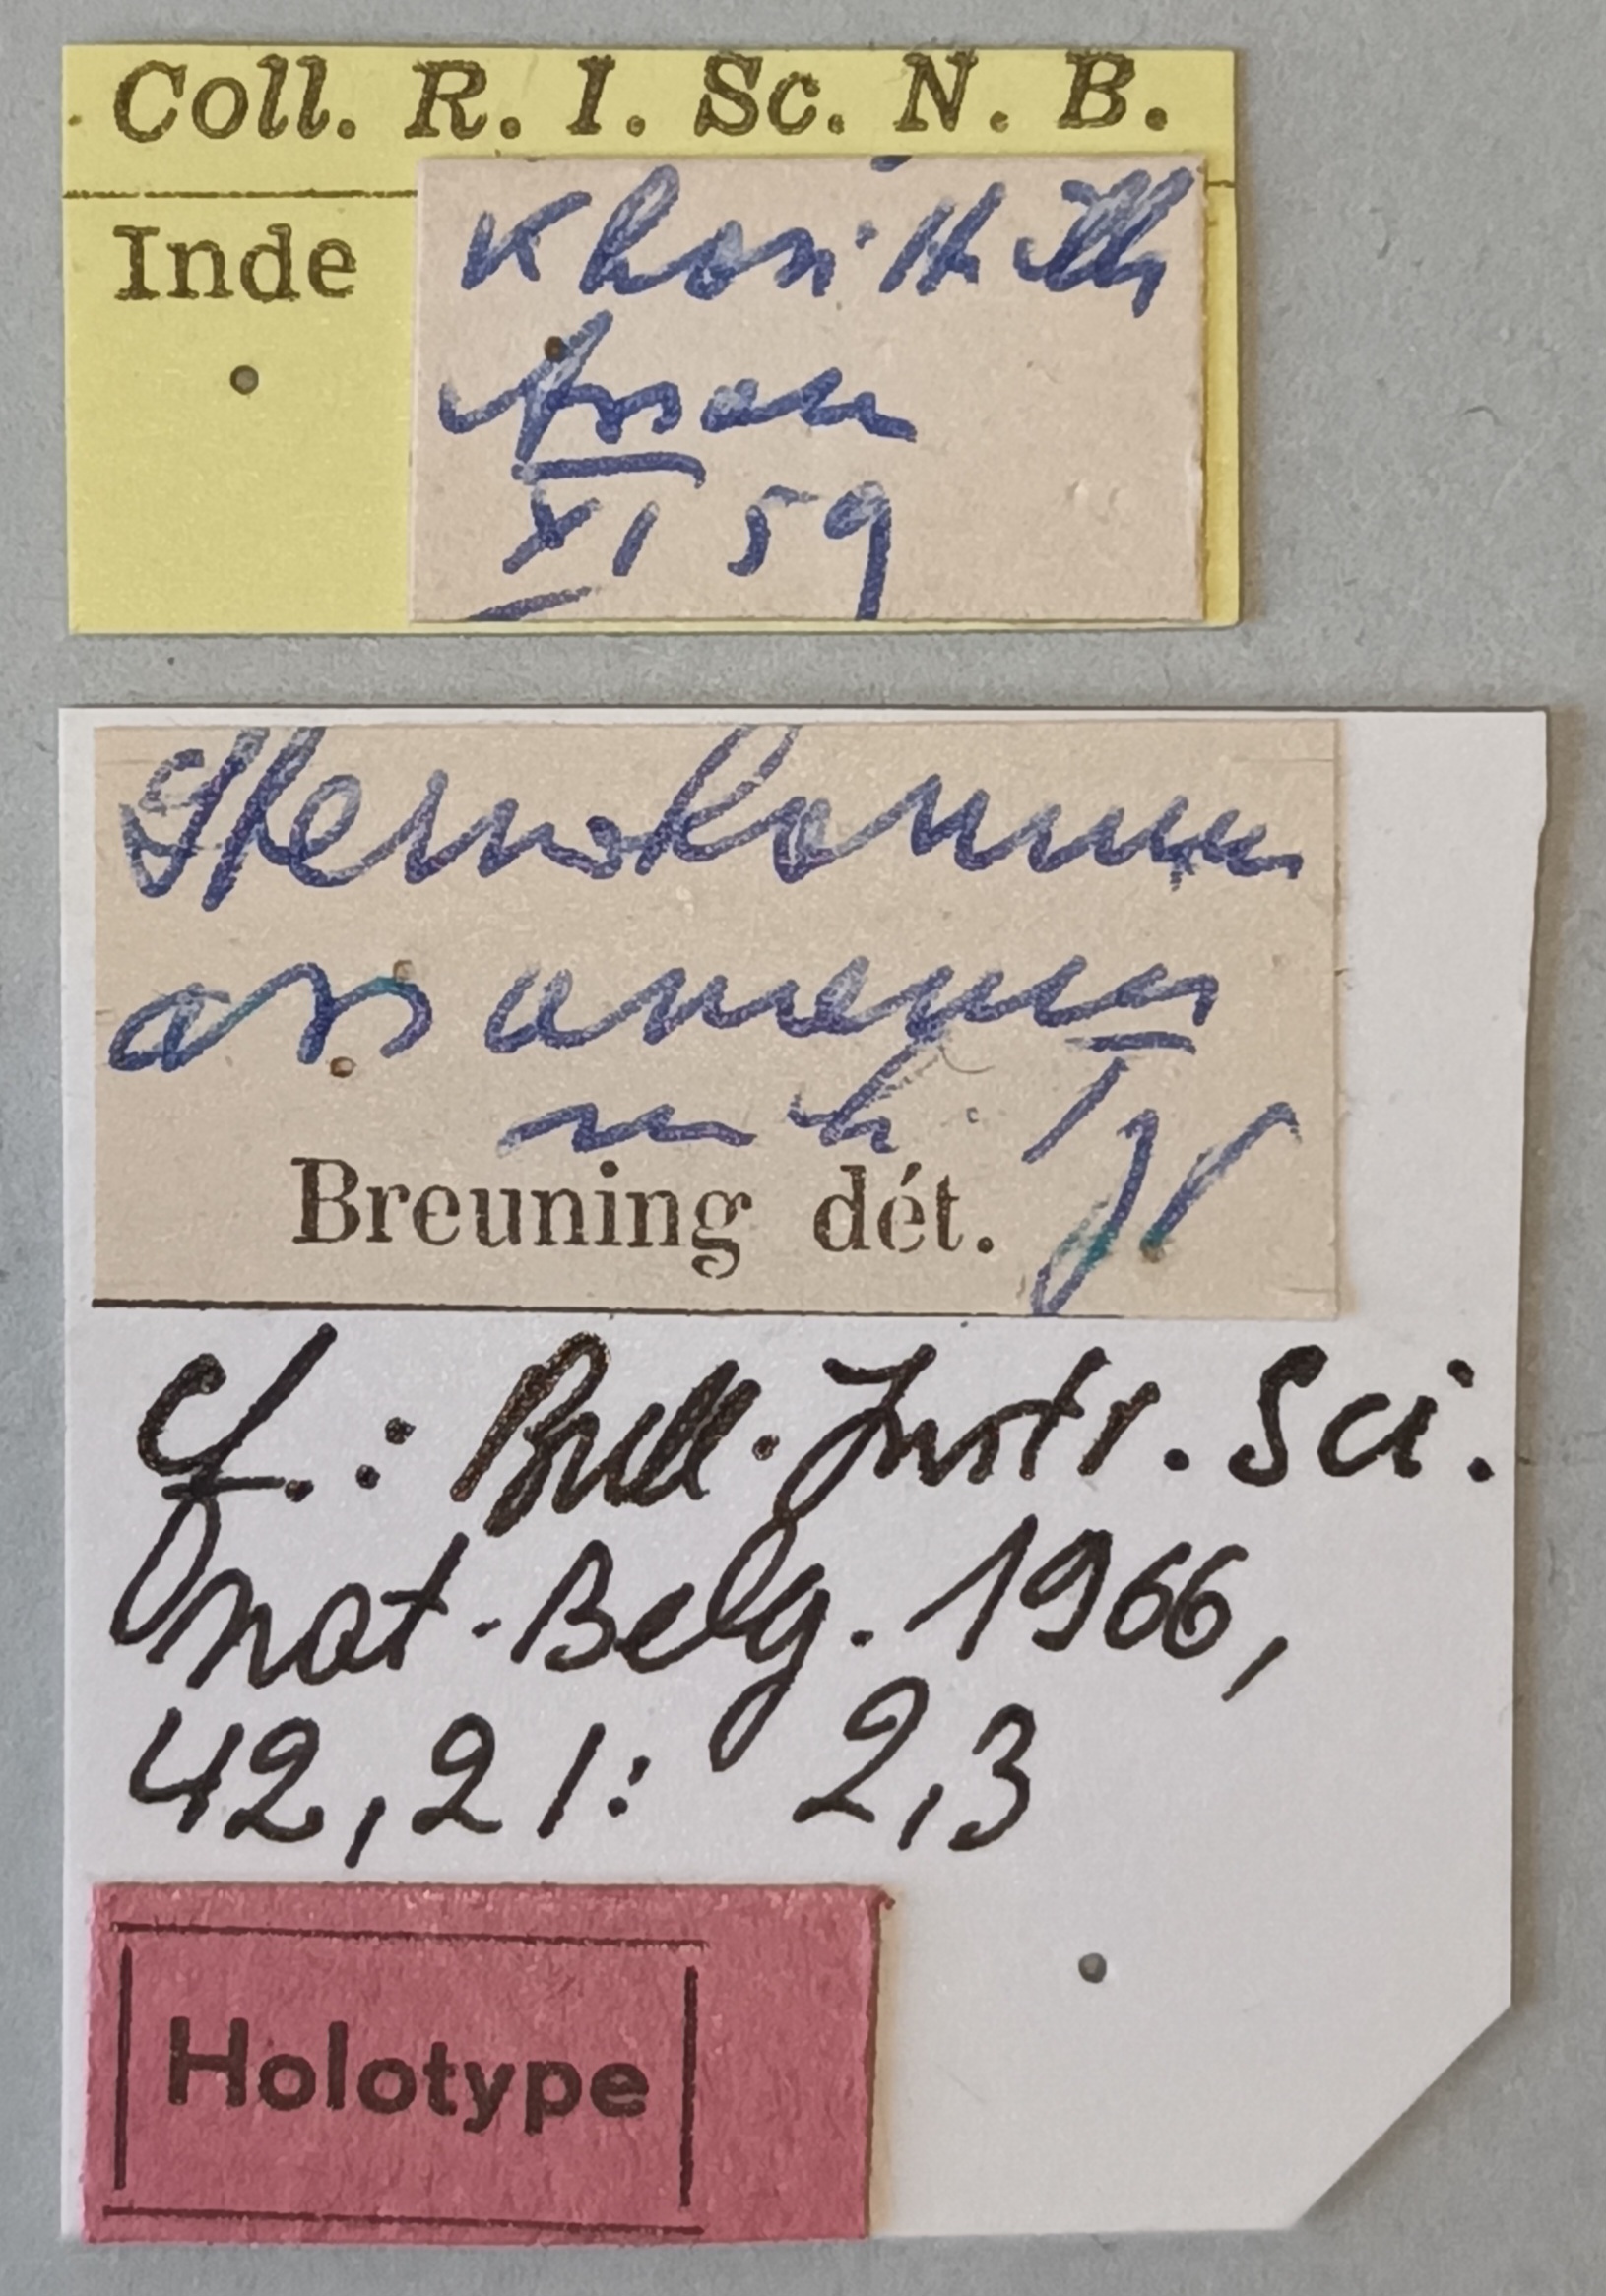 Coll. R. I. Sc. N. B.
Inde
Khasi Hills
Assam
XI 59
assamensis
mihi Typ
Breuning dét.
cf.: Bull. Instr. Sci.
nat. Belg. 1966,
42,21: 2,3
Holotype